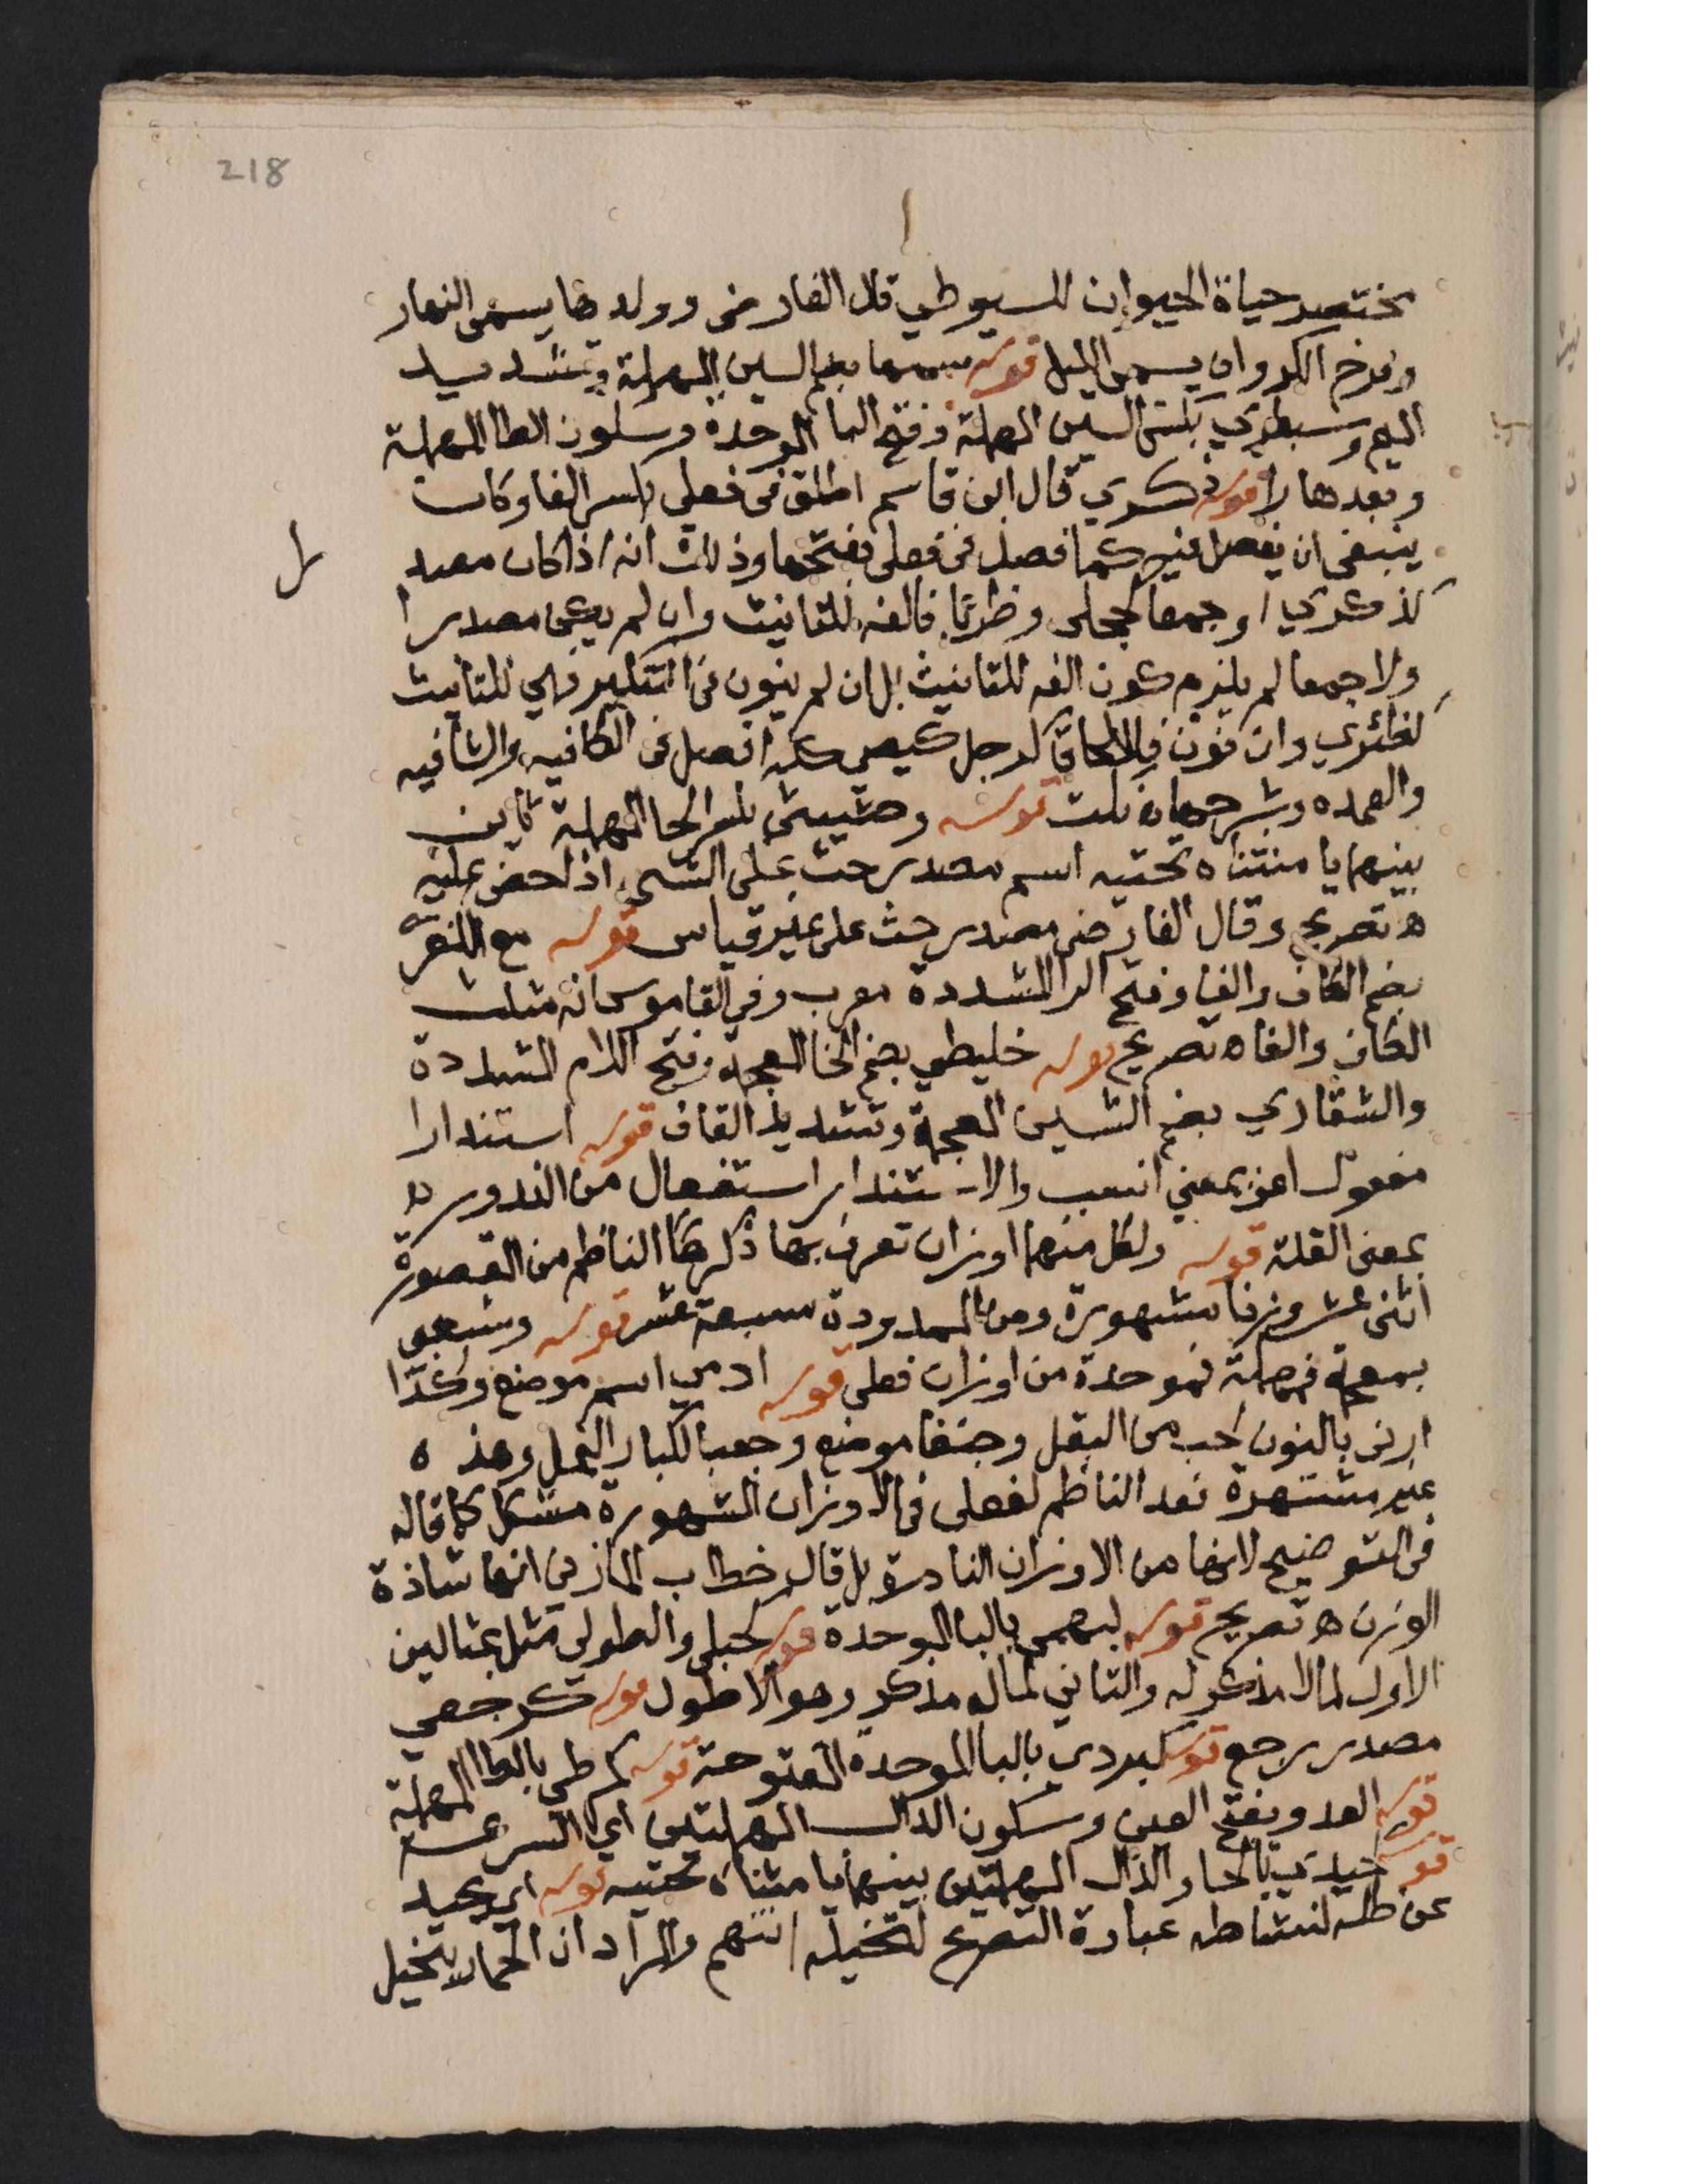 218
مختصر حياة الحيوان للسيوطي قال الفارضي وولدها يسمى النهار
وفرخ الكروان يسمى الليل قوله سمهى بضم السين المهملة وتشديد
الميم وسبطري بكسر السين المهملة وفتح البا الموحدة وسكون الطا المهملة
وبعدها را قوله ذكري قال ابن قاسم اطلق في فعلى بكسر الفا وكان
ينبغي ان يفصل فيه كما فصل في فعلى بفتحها وذلك انه اذا كان مصد
كذكري او جمعا كحجلى وظربى فالفه للتانيث وان لم يكن مصدرا
ولا جمعا لم يلزم كون الفه للتانيث بل ان لم ينون في التنكير فهي للتانيث
كضئزي وان نون فللالحاق كرجل كيصى كذا فصل في الكافيه والشافيه
والعمده وشرحها قوله وحثيثى بكسر الحا المهملة ثاين
بينهما يا مثناه تحتيه اسم مصدر حث على الشي اذا حض عليه
ه تصريح وقال الفارضي مصدر حث على غير قياس قوله مع الكفرى
بضم الكاف والفا وفتح الرا المشددة معرب وفي القاموس انه مثلث
الكاف والفا ه تصريح قوله خليطي بضم الخا المعجمة وفتح اللام المشددة
والشقاري بضم الشين المعجمة وتشديد القاف قوله استندارا
مفعول اعز بمعني انسب والاستندار استفعال من الندور ه
بمعنى القلة قوله ولكل منهما اوزان تعرف بها ذكرها الناظم من المقصورة
اثنى عشر وزنا مشهورة ومن الممدودة سبعة عشر قوله وشعبى
بمعجمة فمهملة فموحدة من اوزان فعلى قوله ادمي اسم موضع وكذا
ارنى بالنون لحب من البقل وجنفا موضع وجعبا لكبار النمل وهذه
غير مشتهرة فعد الناظم لفعلى في الاوزان المشهورة مشكل كما قاله
في التوضيح لانها من الاوزان النادرة بل قال خطاب المازني انها شاذة
الوزن ه تصريح قوله لبهمى بالبا الموحدة قوله كحبلى والطولى مثل بمثالين
الاول لما لا مذكر له والثاني لما له مذكر وهو الاطول قوله كرجعي
مصدر رجع قوله كبردي بالبا الموحدة المفتوحة قوله كمرطى بالطا المهملة
قوله العدو بفتح العين وسكون الدال المهملتين اي السرعة
قوله حيدي بالحا والدال المهملتين بينهما يا مثناه تحتيه قوله اي يحيد
عن ظله لنشاطه عبارة التصريح لتخيله انتهم والمراد ان الحمار يتخيل